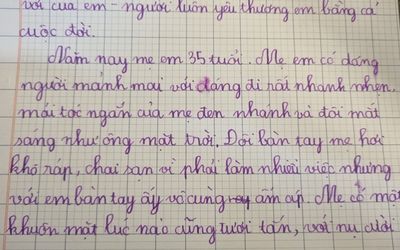 với của em - người luôn yêu thương em bằng cả
cuộc đời.
Năm nay mẹ em 35 tuổi. Mẹ em có dáng
người mảnh mai với dáng đi rất nhanh nhẹn,
mái tóc ngắn của mẹ đen nhánh và đôi mắt
sáng như ông mặt trời. Đôi bàn tay mẹ hơi
khô ráp, chai sạn vì phải làm nhiều việc nhưng
với em bàn tay ấy vô cùng ấm áp. Mẹ có một
khuôn mặt lúc nào cũng tươi tắn, với nụ cười